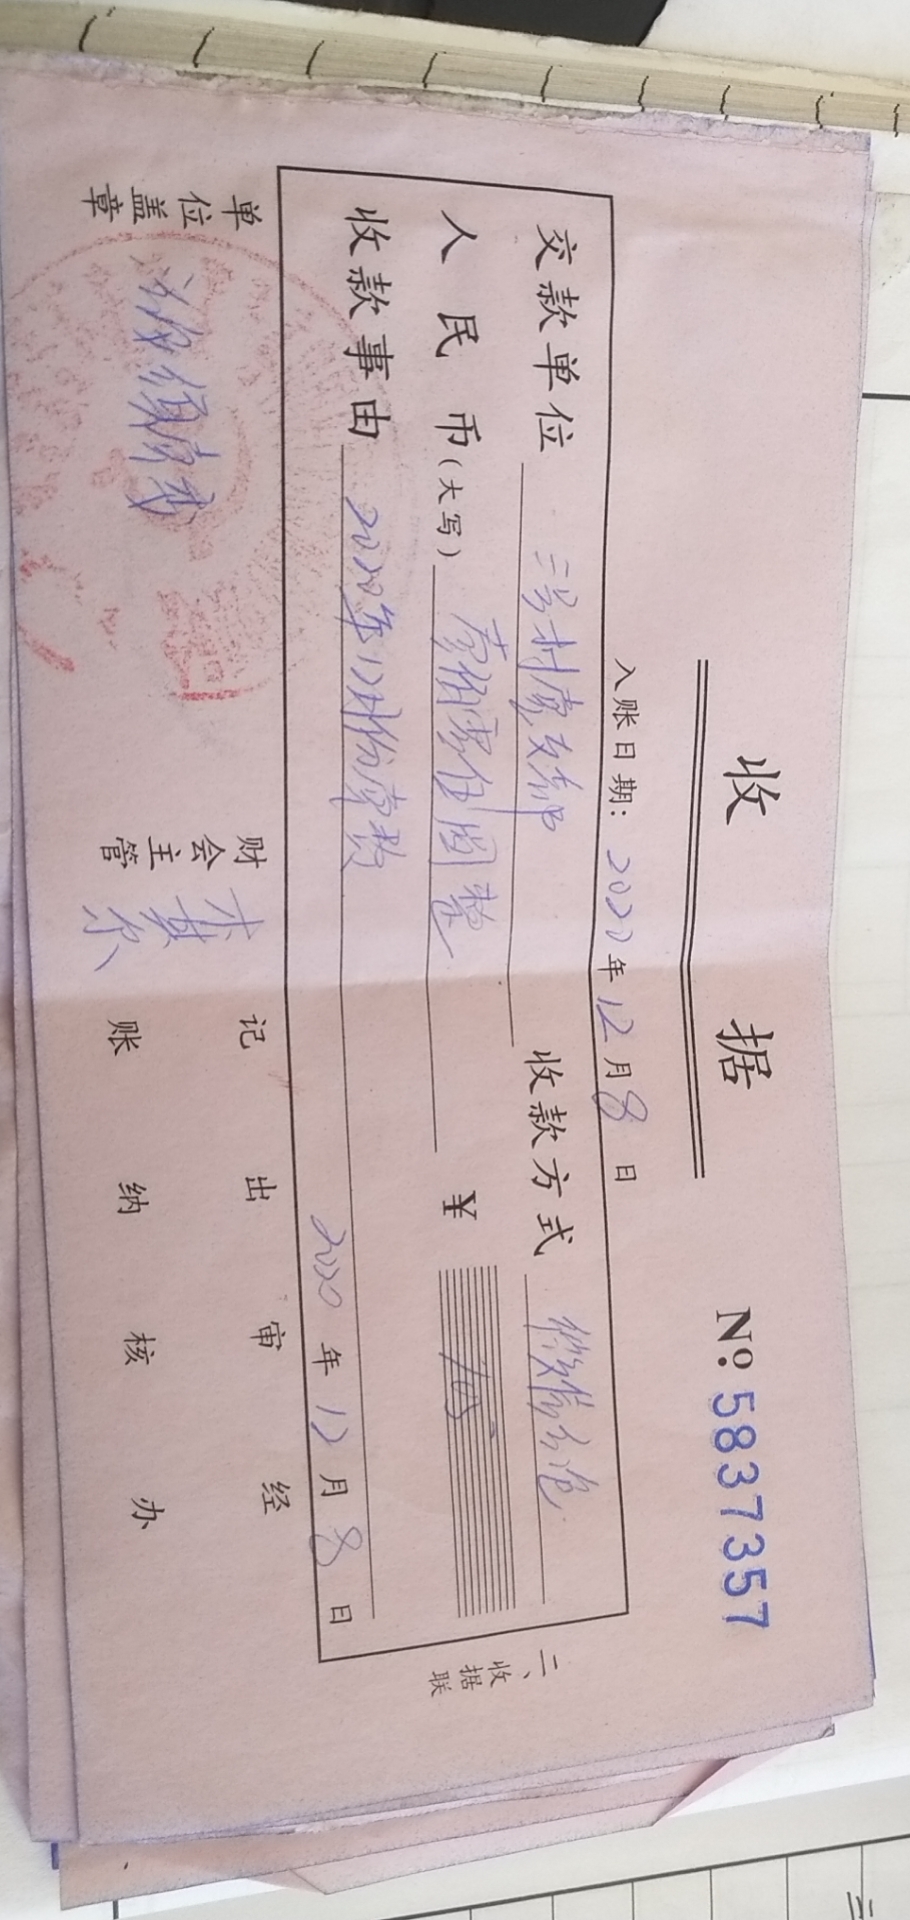 收 据
№ 5837357
入账日期：2020年12月8日
交款单位 三号村党支部 收款方式 微信红包
人民币（大写） 壹佰零伍圆整 ¥ 105
收款事由 2020年12月份党费
2020年12月8日
二、收据联
单位盖章 财会主管 记账 出纳 审核 经办